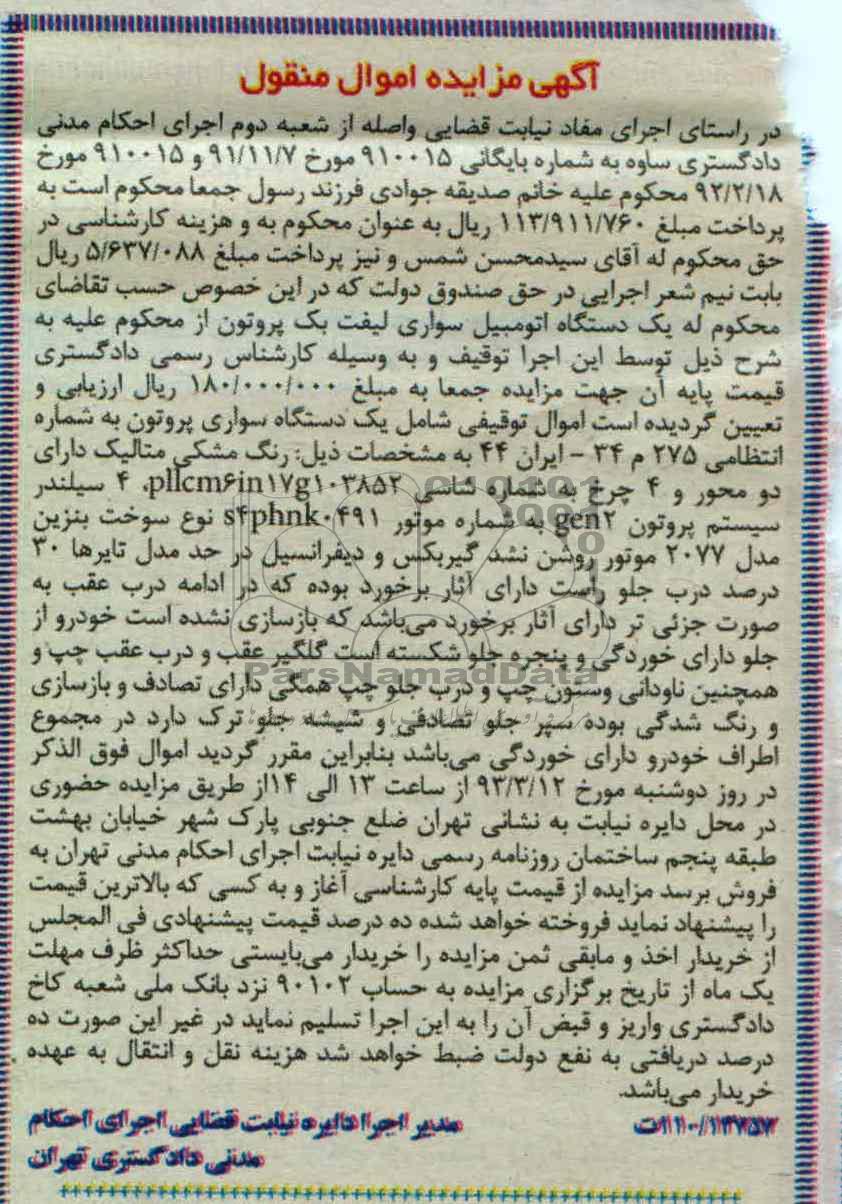 آگهی مزایده اموال منقول
در راستای اجرای مفاد نیابت قضایی واصله از شعبه دوم اجرای احکام مدنی
دادگستری ساوه به شماره بایگانی ۹۱۰۰۱۵ مورخ ۹۱/۱۱/۷ و ۹۱۰۰۱۵ مورخ
۹۲/۲/۱۸ محکوم علیه خانم صدیقه جوادی فرزند رسول جمعا محکوم است به
پرداخت مبلغ ۱۱۳/۹۱۱/۷۶۰ ریال به عنوان محکوم به و هزینه کارشناسی در
حق محکوم له آقای سیدمحسن شمس و نیز پرداخت مبلغ ۵/۶۳۷/۰۸۸ ریال
بابت نیم شعر اجرایی در حق صندوق دولت که در این خصوص حسب تقاضای
محکوم له یک دستگاه اتومبیل سواری لیفت بک پروتون از محکوم علیه به
شرح ذیل توسط این اجرا توقیف و به وسیله کارشناس رسمی دادگستری
قیمت پایه آن جهت مزایده جمعا به مبلغ ۱۸۰/۰۰۰/۰۰۰ ریال ارزیابی و
تعیین گردیده است اموال توقیفی شامل یک دستگاه سواری پروتون به شماره
انتظامی ۲۷۵ م ۳۴ - ایران ۴۴ به مشخصات ذیل: رنگ مشکی متالیک دارای
دو محور و ۴ چرخ به شماره شاسی pllcm۶in۱۷g۱۰۳۸۵۲، ۴ سیلندر
سیستم پروتون gen۲ به شماره موتور s۴phnk۰۴۹۱ نوع سوخت بنزین
مدل ۲۰۷۷ موتور روشن نشد گیربکس و دیفرانسیل در حد مدل تایرها ۳۰
درصد درب جلو راست دارای آثار برخورد بوده که در ادامه درب عقب به
صورت جزئی تر دارای آثار برخورد می‌باشد که بازسازی نشده است خودرو از
جلو دارای خوردگی و پنجره جلو شکسته است گلگیر عقب و درب عقب چپ و
همچنین ناودانی وستون چپ و درب جلو چپ همگی دارای تصادف و بازسازی
و رنگ شدگی بوده سپر جلو تصادفی و شیشه جلو ترک دارد در مجموع
اطراف خودرو دارای خوردگی می‌باشد بنابراین مقرر گردید اموال فوق الذکر
در روز دوشنبه مورخ ۹۳/۳/۱۲ از ساعت ۱۳ الی ۱۴از طریق مزایده حضوری
در محل دایره نیابت به نشانی تهران ضلع جنوبی پارک شهر خیابان بهشت
طبقه پنجم ساختمان روزنامه رسمی دایره نیابت اجرای احکام مدنی تهران به
فروش برسد مزایده از قیمت پایه کارشناسی آغاز و به کسی که بالاترین قیمت
را پیشنهاد نماید فروخته خواهد شده ده درصد قیمت پیشنهادی فی المجلس
از خریدار اخذ و مابقی ثمن مزایده را خریدار می‌بایستی حداکثر ظرف مهلت
یک ماه از تاریخ برگزاری مزایده به حساب ۹۰۱۰۲ نزد بانک ملی شعبه کاخ
دادگستری واریز و قبض آن را به این اجرا تسلیم نماید در غیر این صورت ده
درصد دریافتی به نفع دولت ضبط خواهد شد هزینه نقل و انتقال به عهده
خریدار می‌باشد.
۱۱۰/۱۴۷۵۷ت مدیر اجرا دایره نیابت قضایی اجرای احکام
مدنی دادگستری تهران
ParsNamadData